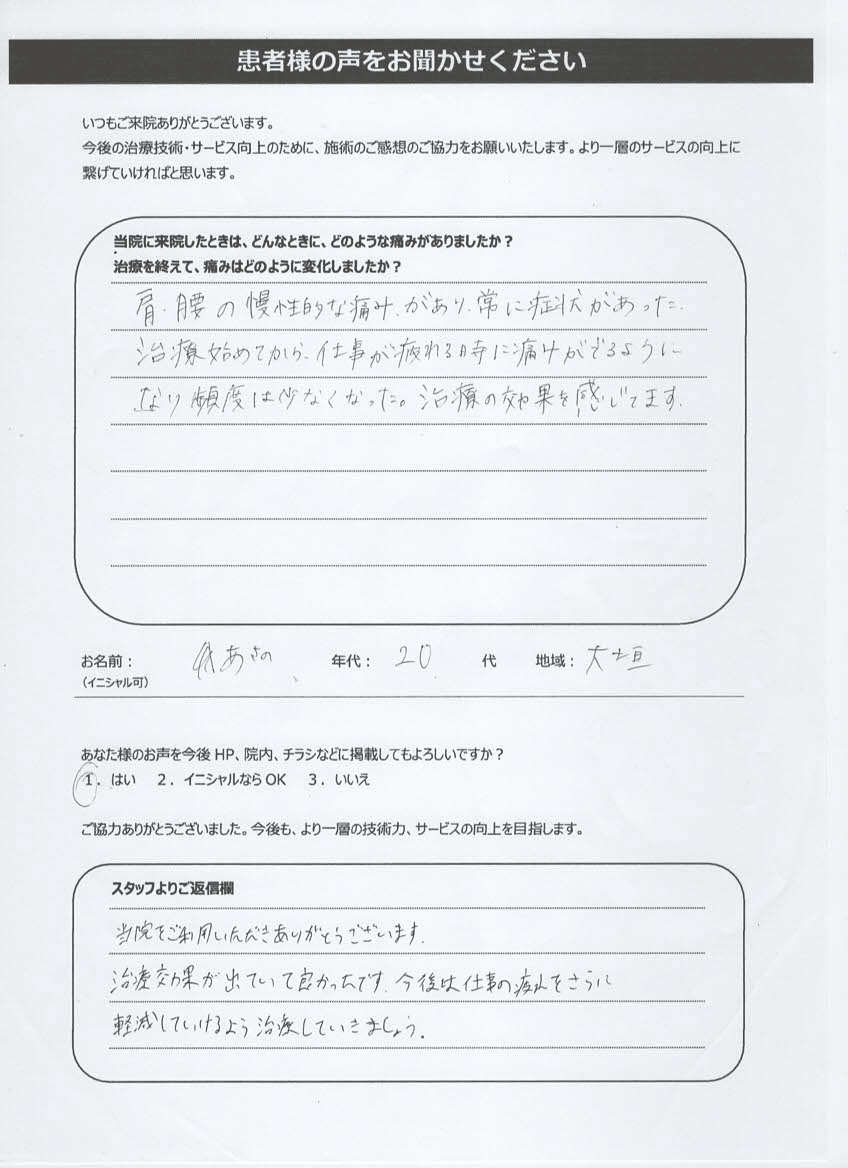 患者様の声をお聞かせください
いつもご来院ありがとうございます。
今後の治療技術・サービス向上のために、施術のご感想のご協力をお願いいたします。より一層のサービスの向上に
繋げていければと思います。
当院に来院したときは、どんなときに、どのような痛みがありましたか？
治療を終えて、痛みはどのように変化しましたか？
肩・腰の慢性的な痛み、があり、常に症状があった。
治療始めてから、仕事が疲れる時に痛みがでるように
なり頻度は少なくなった。治療の効果を感じてます。
お名前： あさの 年代： 20 代 地域： 大垣
（イニシャル可）
あなた様のお声を今後 HP、院内、チラシなどに掲載してもよろしいですか？
1．はい 2．イニシャルなら OK 3．いいえ
ご協力ありがとうございました。今後も、より一層の技術力、サービスの向上を目指します。
スタッフよりご返信欄
当院をご利用いただきありがとうございます。
治療効果が出ていて良かったです。今後は仕事の疲れをさらに
軽減していけるよう治療していきましょう。